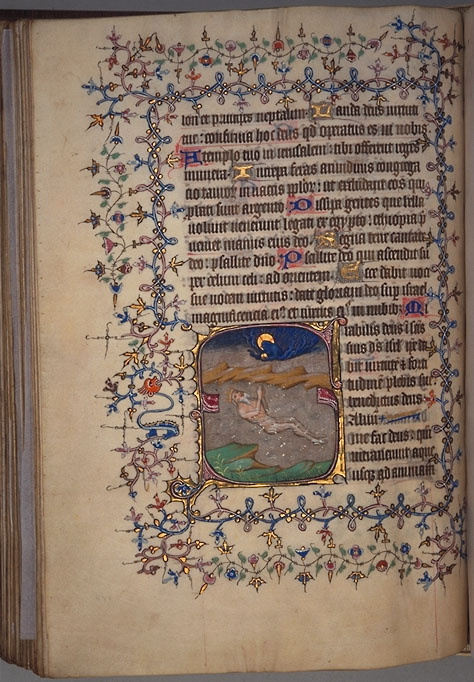 lon et principes neptalim. Manda deus virtuti
tue: confirma hoc deus qd operatus es in nobis
A templo tuo in ierusalem: tibi offerent reges
munera. Increpa feras arundinis congrega
tio tauror in vaccis pplor: ut excludant eos qui
probati sunt argento. Dissipa gentes que bella
volunt venient legati ex egypto: ethiopia p
veniet manus eius deo. Regna terre cantate
deo: psallite dno. Psallite deo qui ascendit su
per celum celi: ad orientem. Ecce dabit voci
sue vocem virtutis: date gloriam deo sup israel
magnificencia eius et virtus eius in nubib. Mi
rabilis deus i scis
suis ds isrl ipse da
bit virtute et forti
tudinem plebis sue
benedictus deus
me fac deus: qm
intraverunt aque
usq ad animam